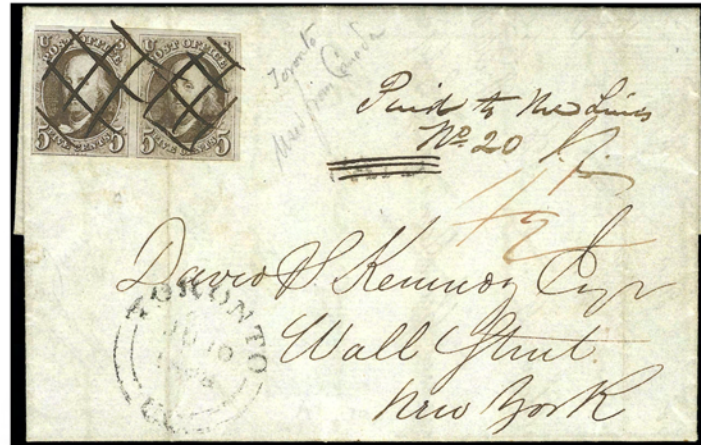 U S
POST OFFICE
5 FIVE CENTS 5
U S
POST OFFICE
5 FIVE CENTS 5
Toronto
Used from Canada
Paid to the Lines
No 20
David S. Kennedy Esqr
Wall Street
New York
TORONTO